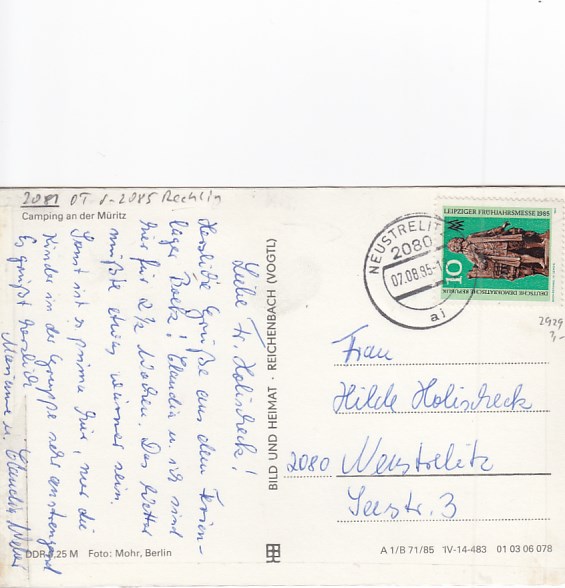 2081 OT v-2085 Rechlin
Camping an der Müritz
Liebe Fr. Holischeck!
Herzliche Grüße aus dem Ferien-
lager Boek! Claudia u. ich sind
hier für 2½ Wochen. Das Wetter
müßte etwas wärmer sein.
Sonst ist es prima hier, nur die
Kinder in der Gruppe sehr anstrengend
Es grüßt herzlich
Marianne u. Claudia
DDR 1,25 M Foto: Mohr, Berlin
BILD UND HEIMAT · REICHENBACH (VOGTL)
NEUSTRELITZ
2080
07.08.85-1
aj
LEIPZIGER FRÜHJAHRSMESSE 1985
10
DEUTSCHE DEMOKRATISCHE REPUBLIK
2929
3,-
Frau
Hilde Holischeck
2080 Neustrelitz
Seestr. 3
A 1/B 71/85 IV-14-483 01 03 06 078